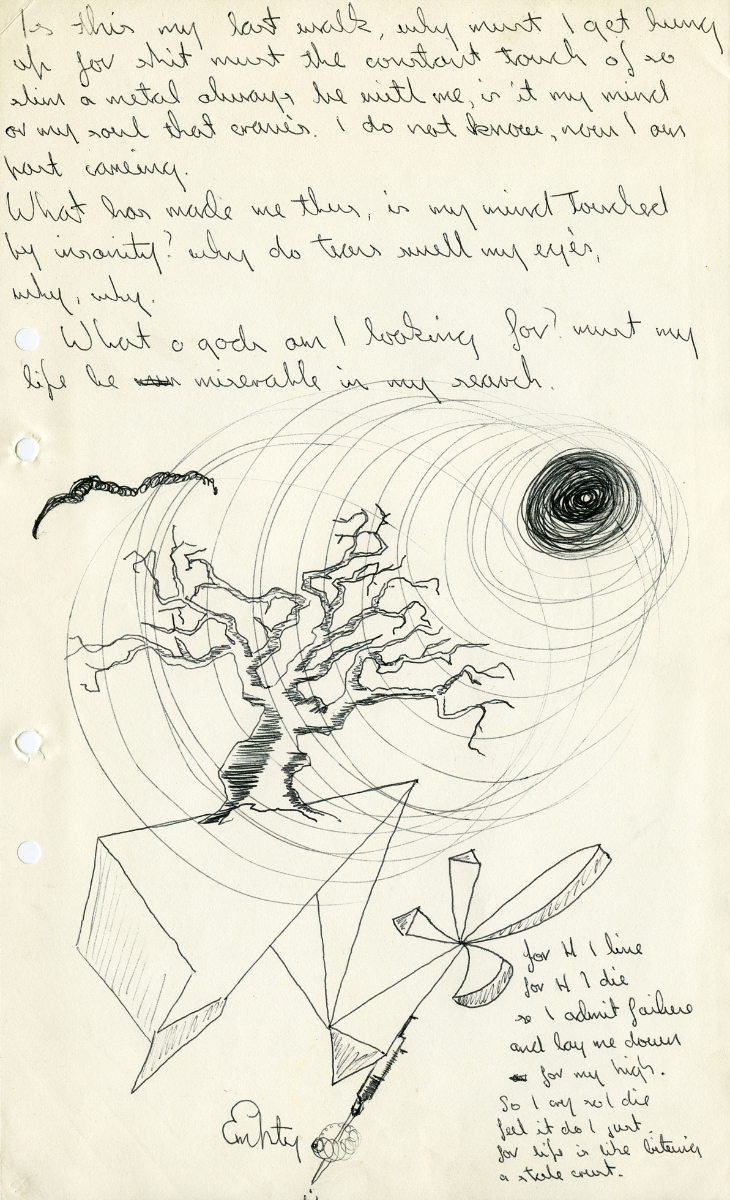 Is this my last walk, why must I get hung
up for shit must the constant touch of so
slim a metal always be with me, is it my mind
or my soul that craves. I do not know, now I am
past careing.
What has made me thus, is my mind Touched
by insanity? why do tears swell my eyes,
why, why.
What o gods am I looking for? must my
life be miserable in my search.
for H I live
for H I die
so I admit failure
and lay me down
for my high.
So I cry so I die
feel it do I just.
for life is like biteing
a stale crust.
Emhty